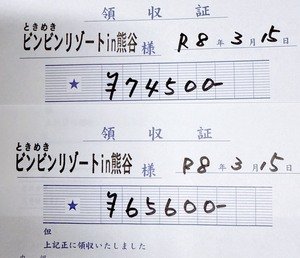 領収証
ときめき
ピンピンリゾートin熊谷 様 R8年3月15日
★ ¥74500-
領収証
ときめき
ピンピンリゾートin熊谷 様 R8年3月15日
★ ¥65600-
但
上記正に領収いたしました